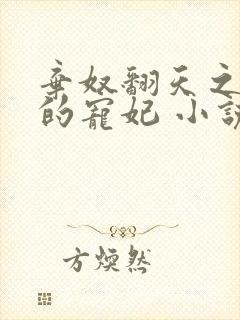 弃奴翻天之
的宠妃 小说
方煐然